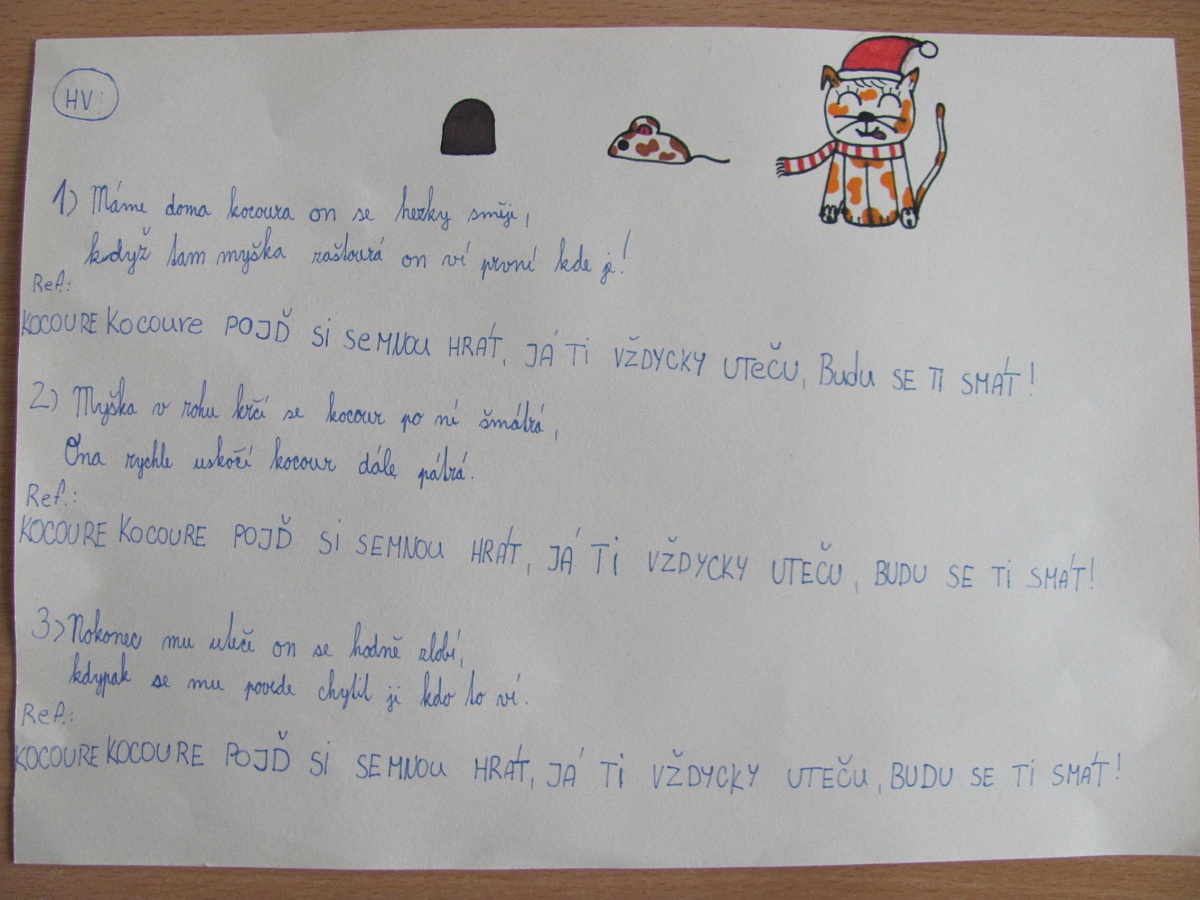 HV
1) Máme doma kocoura on se hezky směje,
když tam myška zaštourá on ví první kde je!
Ref.:
KOCOURE Kocoure POJĎ SI SeMNOU HRÁT, JÁ TI VŽDYCKY UTeČU, Budu SE TI SMÁT!
2) Myška v rohu krčí se kocour po ní šmátrá,
Ona rychle uskočí kocour dále pátrá.
Ref.:
KOCOURE KOCOURE POJĎ SI SEMNOU HRÁT, JÁ TI VŽDYCKY UTEČU, BUDU SE TI SMÁT!
3) Nokonec mu uteče on se hodně zlobí,
kdypak se mu povede chytit ji kdo to ví.
Ref.:
KOCOURE KOCOURE POJĎ SI SEMNOU HRÁT, JÁ TI VŽDYCKY UTEČU, BUDU SE TI SMÁT!